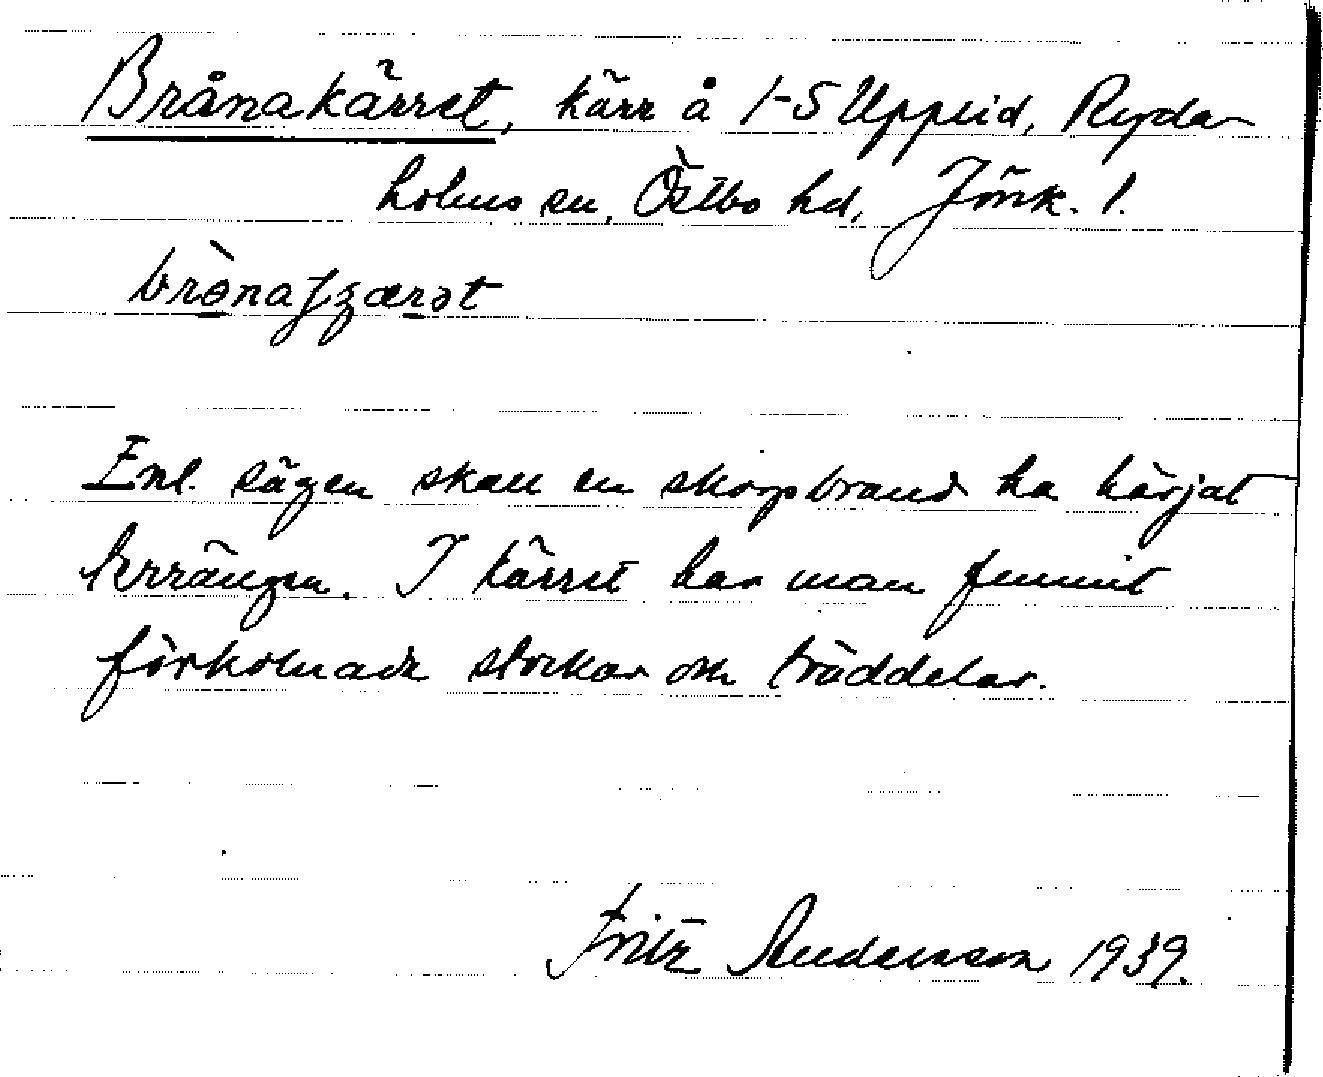 Brånakärret, kärr å 1-5 Upplid, Ryda-
holms sn, Östbo hd, Jönk. l.
Enl. sägen skall en skogsbrand ha härjat
terrängen. I kärret har man funnit
förkolnade stockar och träddelar.
Fritz Andersson 1939.